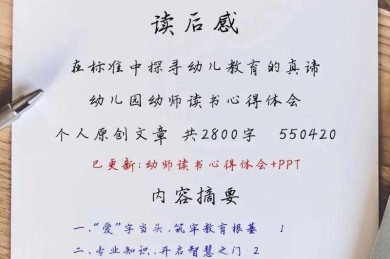 读后感
在标准中探寻幼儿教育的真谛
幼儿园幼师读书心得体会
个人原创文章 共2800字 550420
已更新:幼师读书心得体会+PPT
内容摘要
一、“爱”字当头,筑牢教育根基 1
二、专业知识,开启智慧之门 2